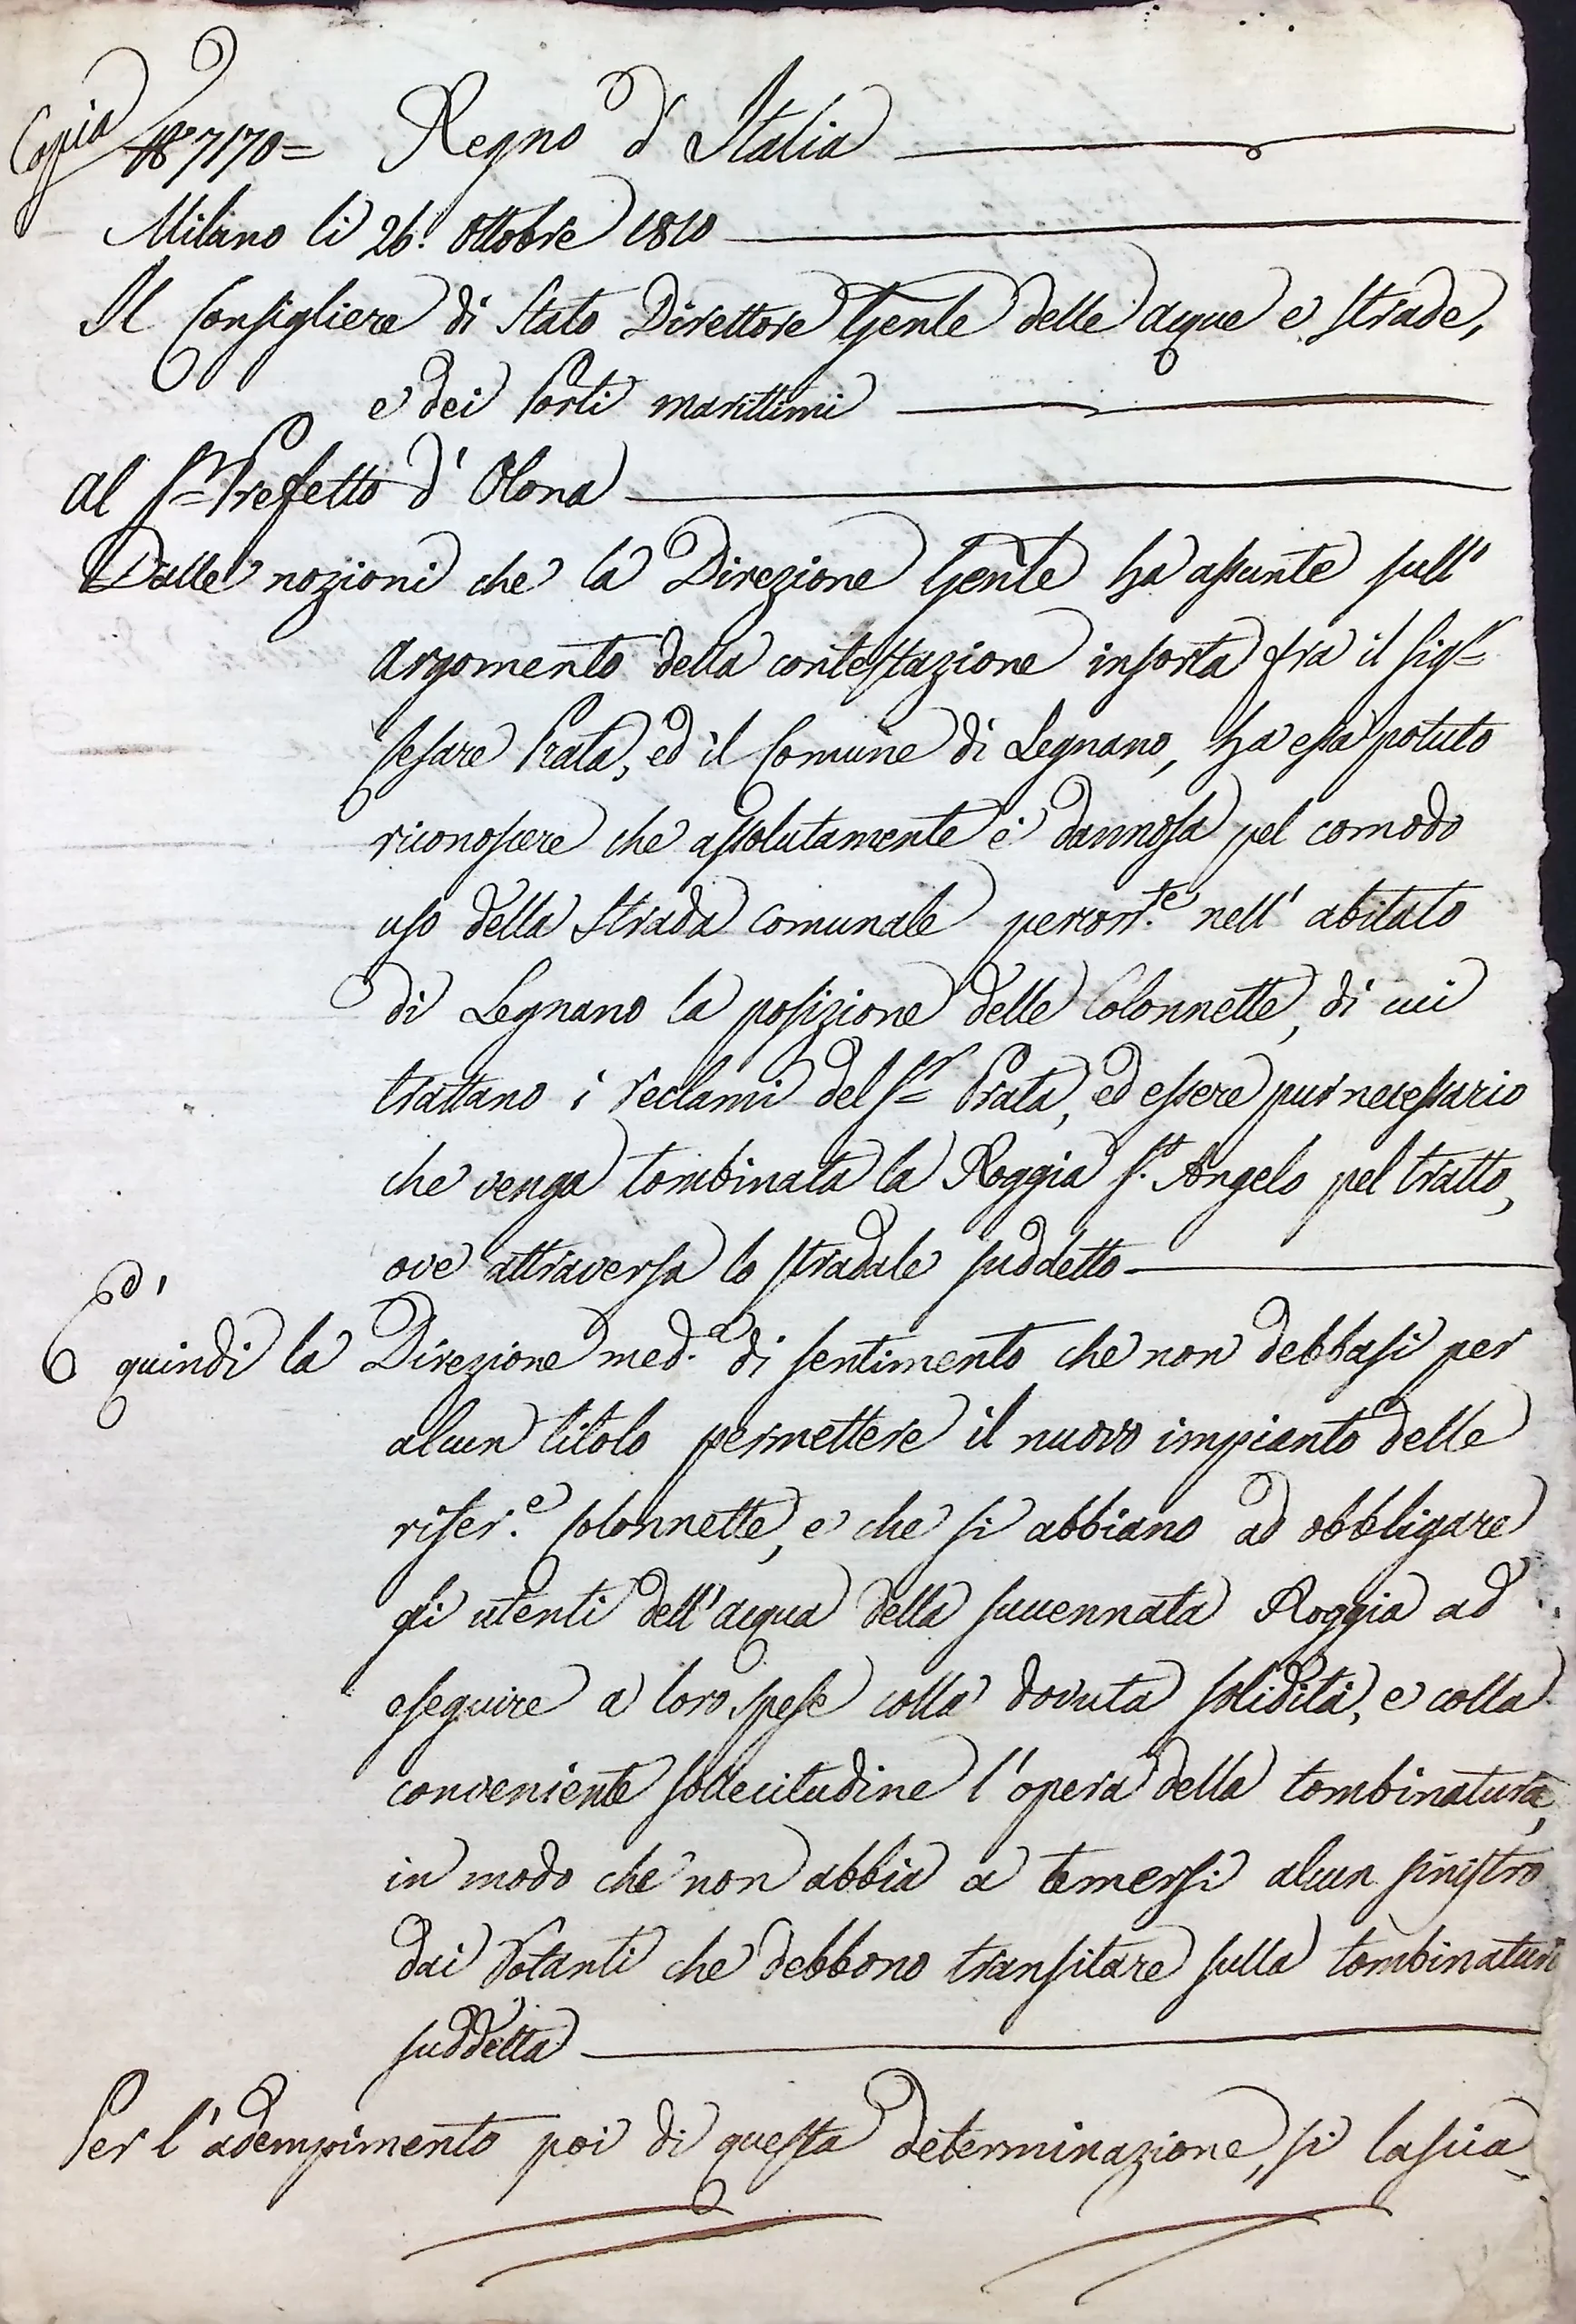 Copia N.° 7170= Regno d'Italia
Milano li 26. Ottobre 1810
Il Consigliere di Stato Direttore Gen.le delle acque e strade,
e dei Porti marittimi
Al S.r Prefetto d'Olona
Dalle nozioni che la Direzione Gen.le ha assunte sull'
argomento della contestazione insorta fra il Sig.r
Cesare Prata, ed il Comune di Legnano, ha essa potuto
riconoscere che assolutamente è dannosa pel comodo
uso della Strada comunale percorr.te nell'abitato
di Legnano la posizione delle Colonnette, di cui
trattano i reclami del S.r Prata, ed essere pur necessario
che venga tombinata la Roggia S.t Angelo pel tratto,
ove attraversa lo stradale suddetto
È quindi la Direzione med.a di sentimento che non debbasi per
alcun titolo permettere il nuovo impianto delle
rifer.e Colonnette, e che si abbiano ad obbligare
gli utenti dell'acqua della succennata Roggia ad
eseguire a loro spese colla dovuta solidità, e colla
conveniente sollecitudine l'opera della tombinatura,
in modo che non abbia a temersi alcun sinistro
dai Rotanti che debbono transitare sulla tombinatura
suddetta
Per l'adempimento poi di questa determinazione, si lascia